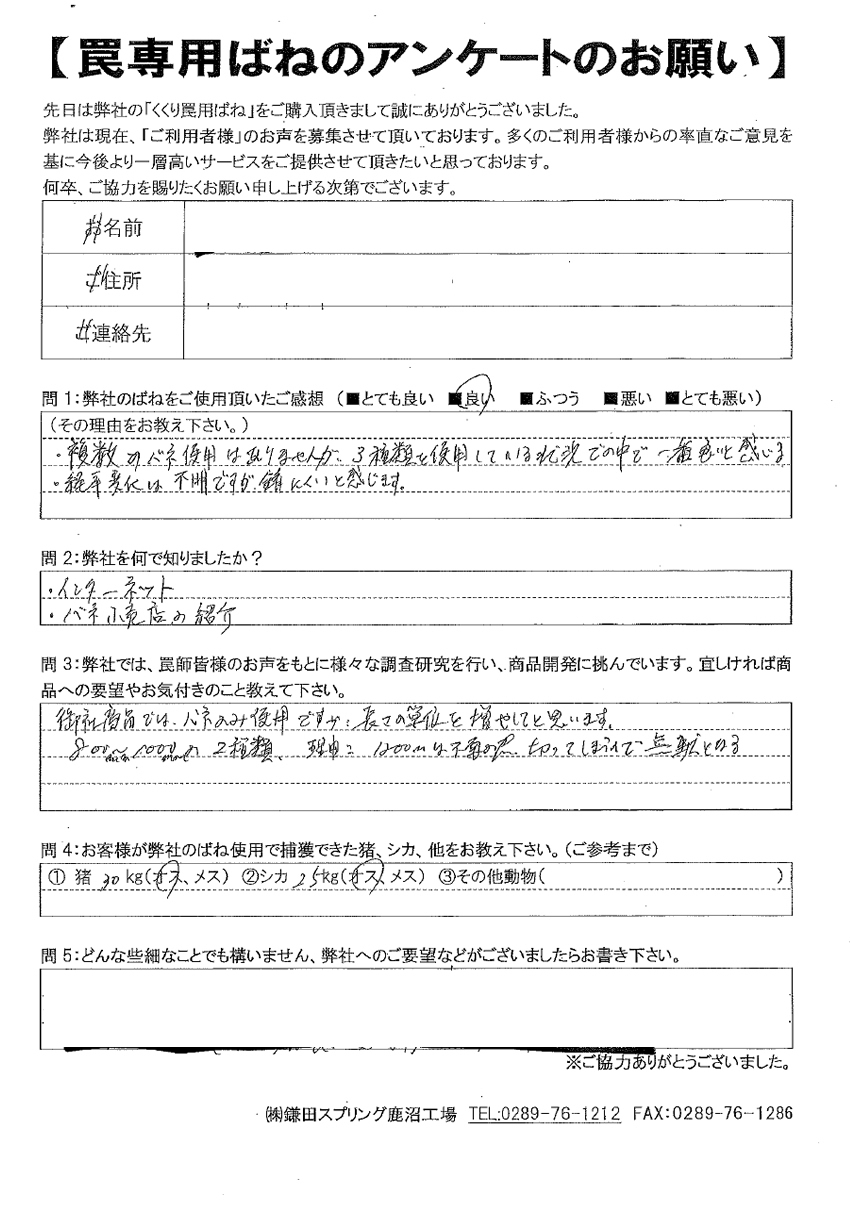 【罠専用ばねのアンケートのお願い】
先日は弊社の「くくり罠用ばね」をご購入頂きまして誠にありがとうございました。
弊社は現在、「ご利用者様」のお声を募集させて頂いております。多くのご利用者様からの率直なご意見を
基に今後より一層高いサービスをご提供させて頂きたいと思っております。
何卒、ご協力を賜りたくお願い申し上げる次第でございます。
お名前
ご住所
ご連絡先
問1:弊社のばねをご使用頂いたご感想 (■とても良い ■良い ■ふつう ■悪い ■とても悪い)
(その理由をお教え下さい。)
・複数のバネ使用はありませんが、3種類を使用している状況での中で一番良いと感じる
・経年変化は不明ですが、錆にくいと感じます。
問2:弊社を何で知りましたか?
・インターネット
・バネ小売店の紹介
問3:弊社では、罠師皆様のお声をもとに様々な調査研究を行い、商品開発に挑んでいます。宜しければ商
品への要望やお気付きのこと教えて下さい。
御社商品では、バネのみ使用ですが、長さの単位を増やしてと思います。
800mm〜1000mmの2種類、理由: 1200mは 切ってしまうので無駄となる
問4:お客様が弊社のばね使用で捕獲できた猪、シカ、他をお教え下さい。(ご参考まで)
① 猪 30 kg(オス、メス) ②シカ 25kg(オス、メス) ③その他動物( )
問5:どんな些細なことでも構いません、弊社へのご要望などがございましたらお書き下さい。
※ご協力ありがとうございました。
㈱鎌田スプリング鹿沼工場 TEL:0289-76-1212 FAX:0289-76-1286